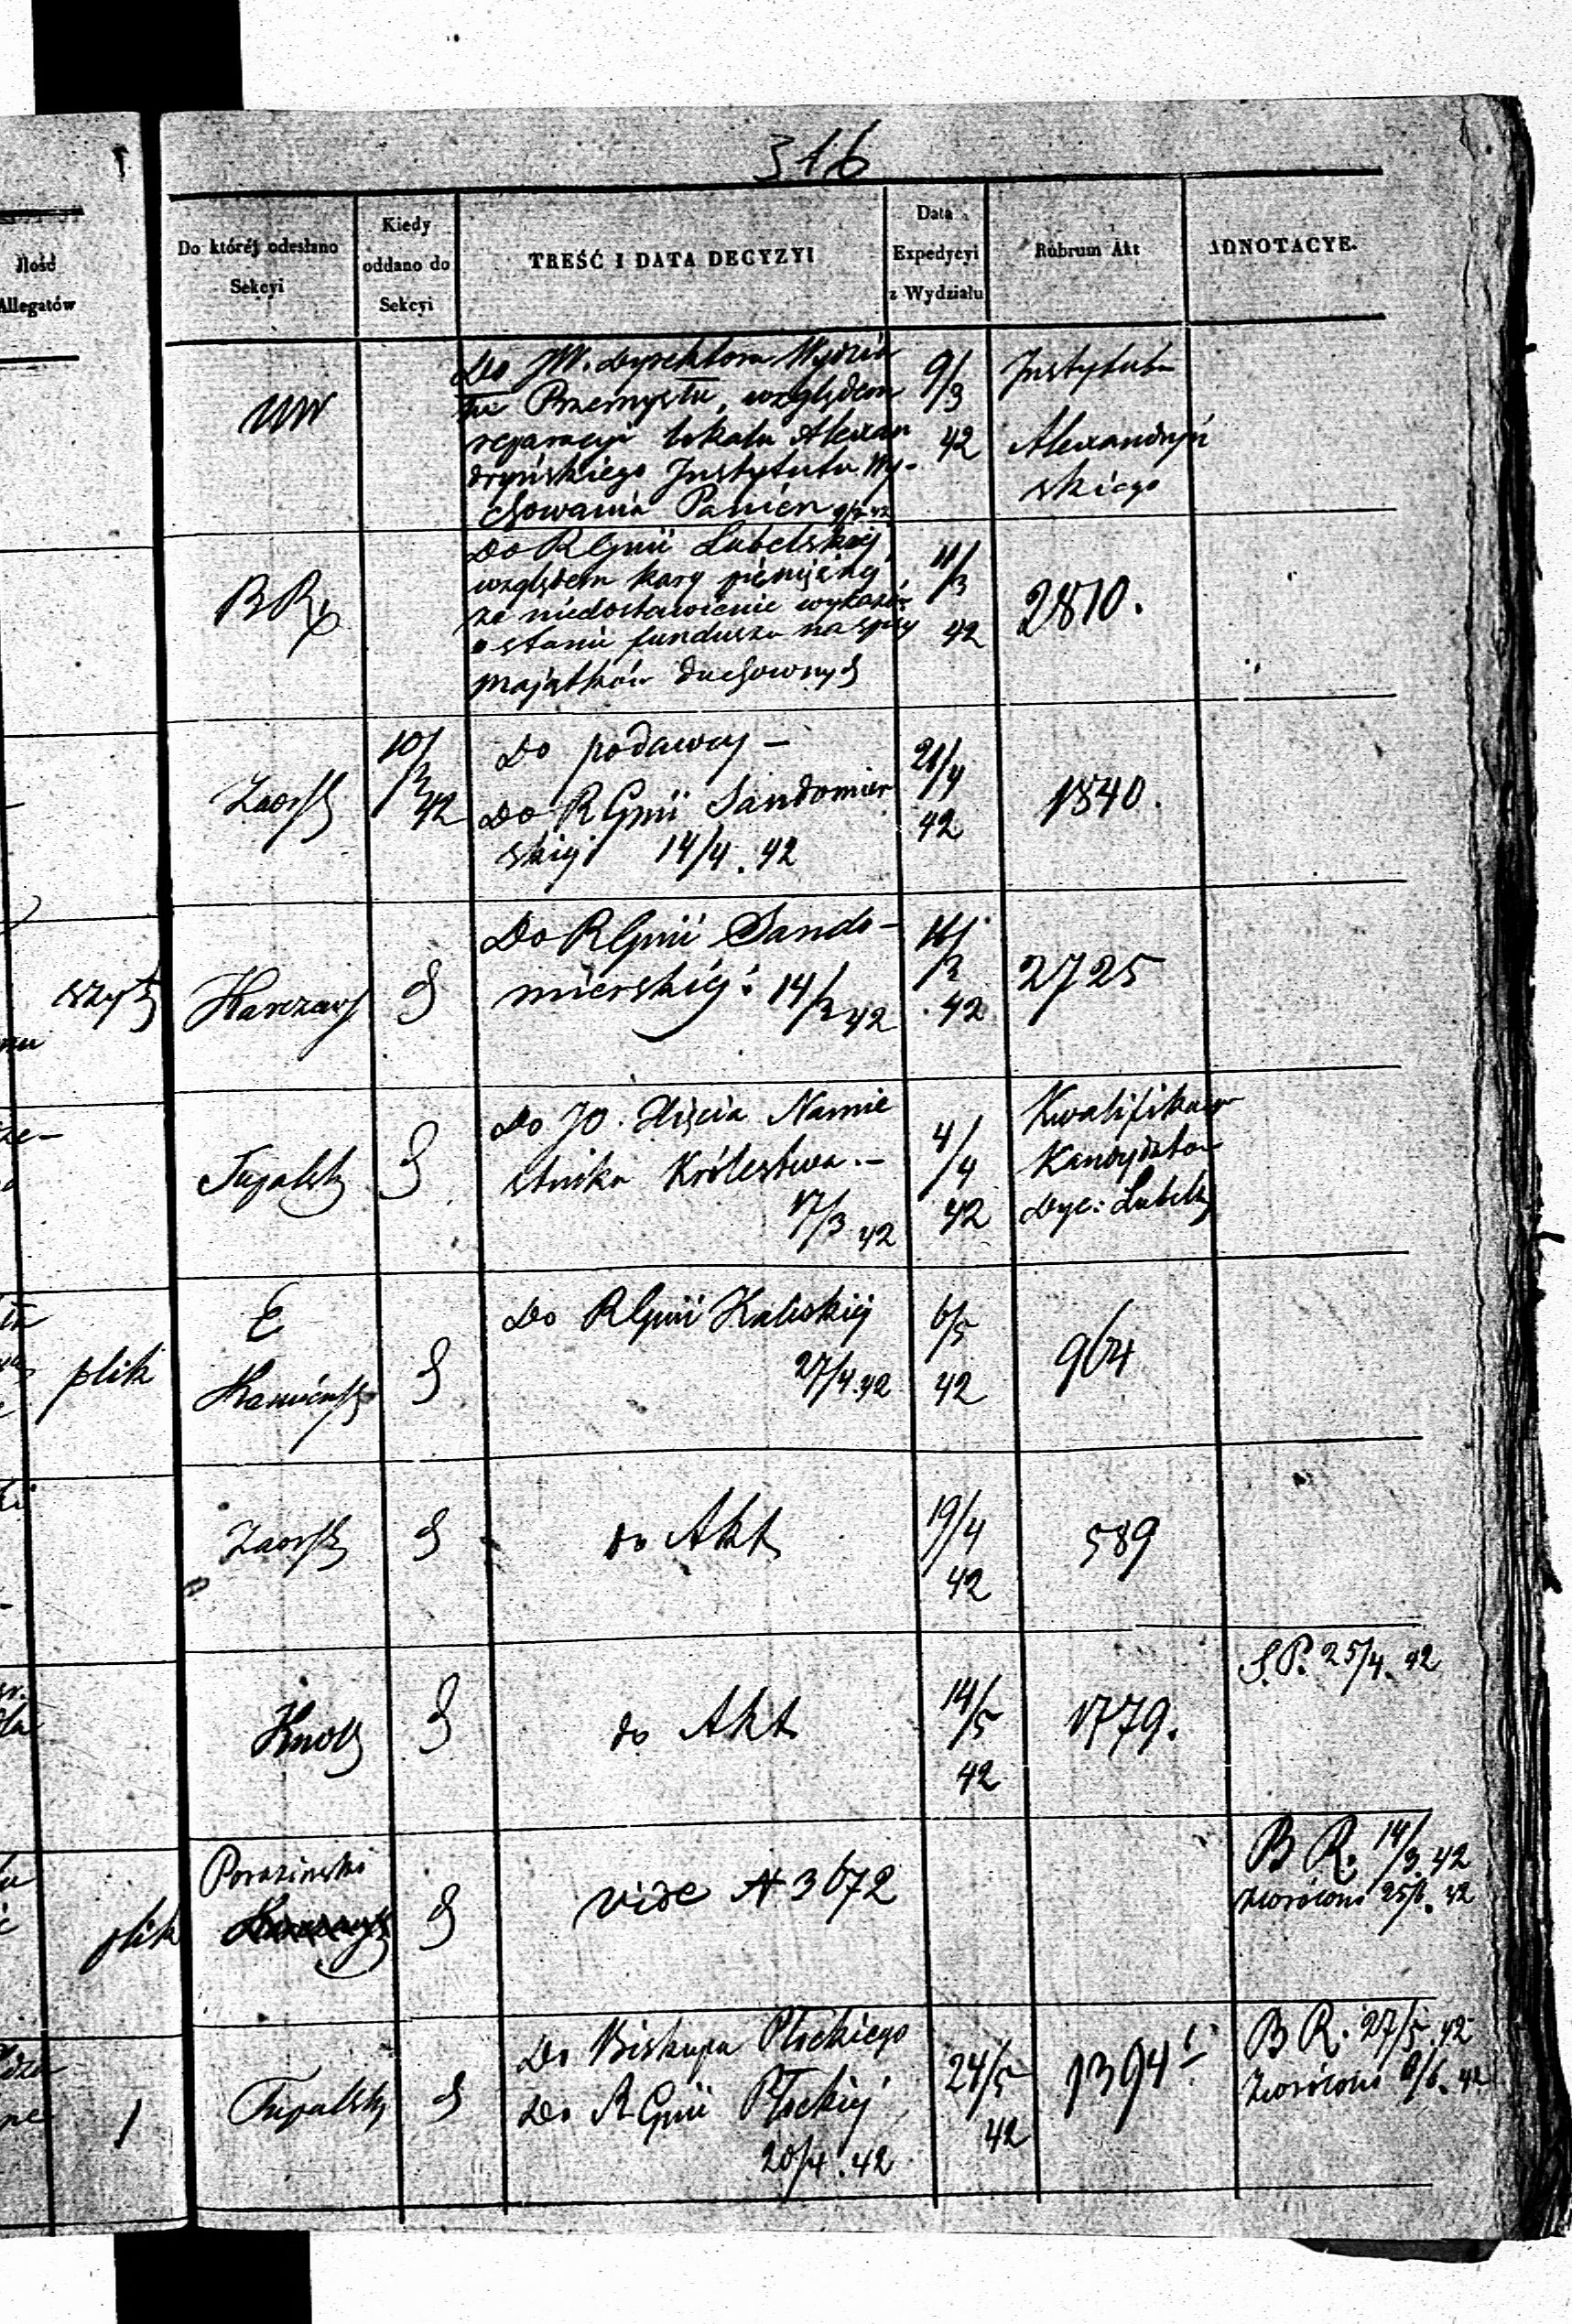 316
Ilość
Allegatów
Do któréj odesłano
Sekcyi
Kiedy
oddano do
Sekcyi
TREŚĆ I DATA DECYZYI
Data
Expedycyi
z Wydziału
Rubrum Akt
ADNOTACYE.
Do JW. Dyrektora Wydzia
łu Przemysłu, względem
reparacyi lokalu Alexan
dryńskiego Instytutu Wy-
chowania Panien
9/3
42
Instytutu
Alexandryń
skiego
BR
Do RGnii Lubelskiej
względem kary pieniężnej
za niedostawienie wykazów
o stanie funduszu na spisy
majątków duchownych
11/3
42
2810.
Zaorsk
10/3
42
Do podawcy —
Do RGnii Sandomier
skiej 14/4. 42
21/4
42
1840.
szyt
Karczews
Do RGnii Sando-
mierskiej: 14/3 42
42
2725
Tupalsk
Do JO. Xięcia Namie
stnika Królestwa.—
17/3 42
4/4
42
Kwalifikacye
Kandydatów
Dyec: Lubelsk
plik
E
Kamieńsk
Do RGnii Kaliskiej
27/4.42
6/5
42
964
Zaorsk
do Akt
19/4
42
589
do Akt
14/5
42
1779.
S.P. 25/4. 42
plik
Porazinski
vide N 3672
B R. 14/3. 42
zwrócono 42
1
Tupalsk
Do Biskupa Płockiego
Do RGnii Płockiej
20/4. 42
24/5
42
1394
B R. 27/5. 42
zwrócono 8/6. 42